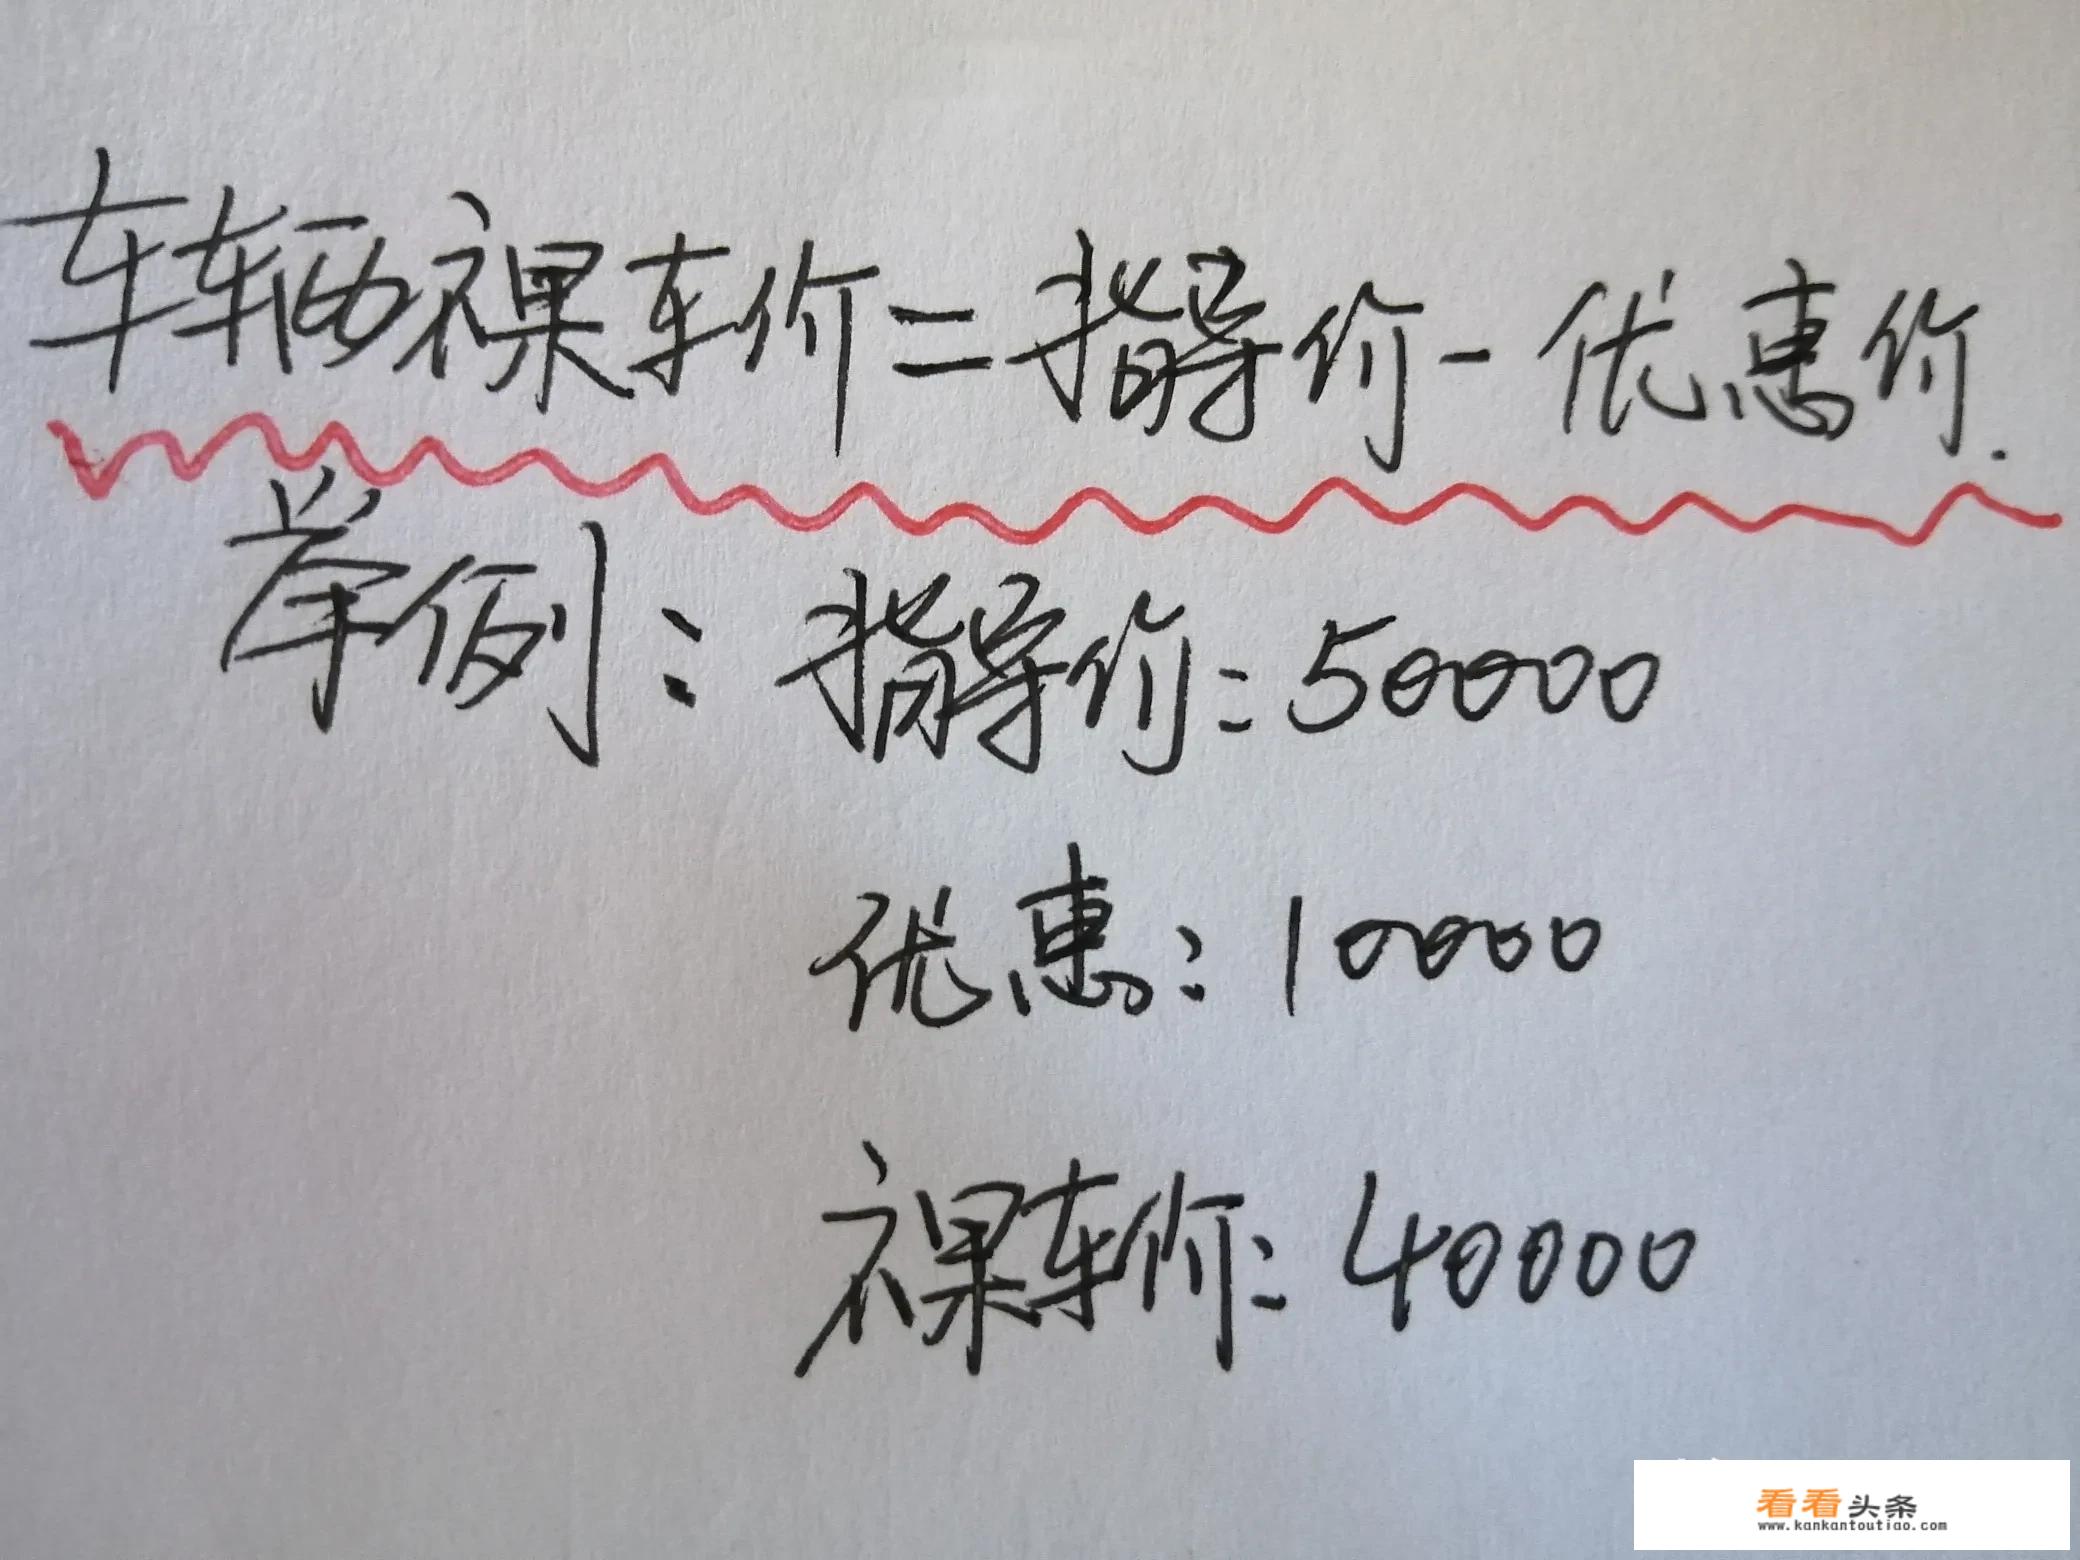 车辆裸车价=指导价-优惠价.
举例：指导价：50000
优惠：10000
裸车价：40000
看看头条
www.kankantoutiao.com